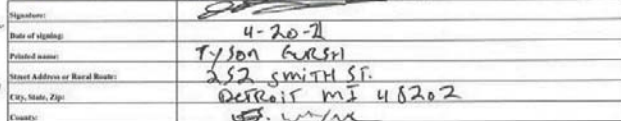 Signature:
Date of signing: 4-20-21
Printed name: Tyson
Street Address or Rural Route: 252 SMITH ST.
City, State, Zip: DETROIT MI 48202
County: